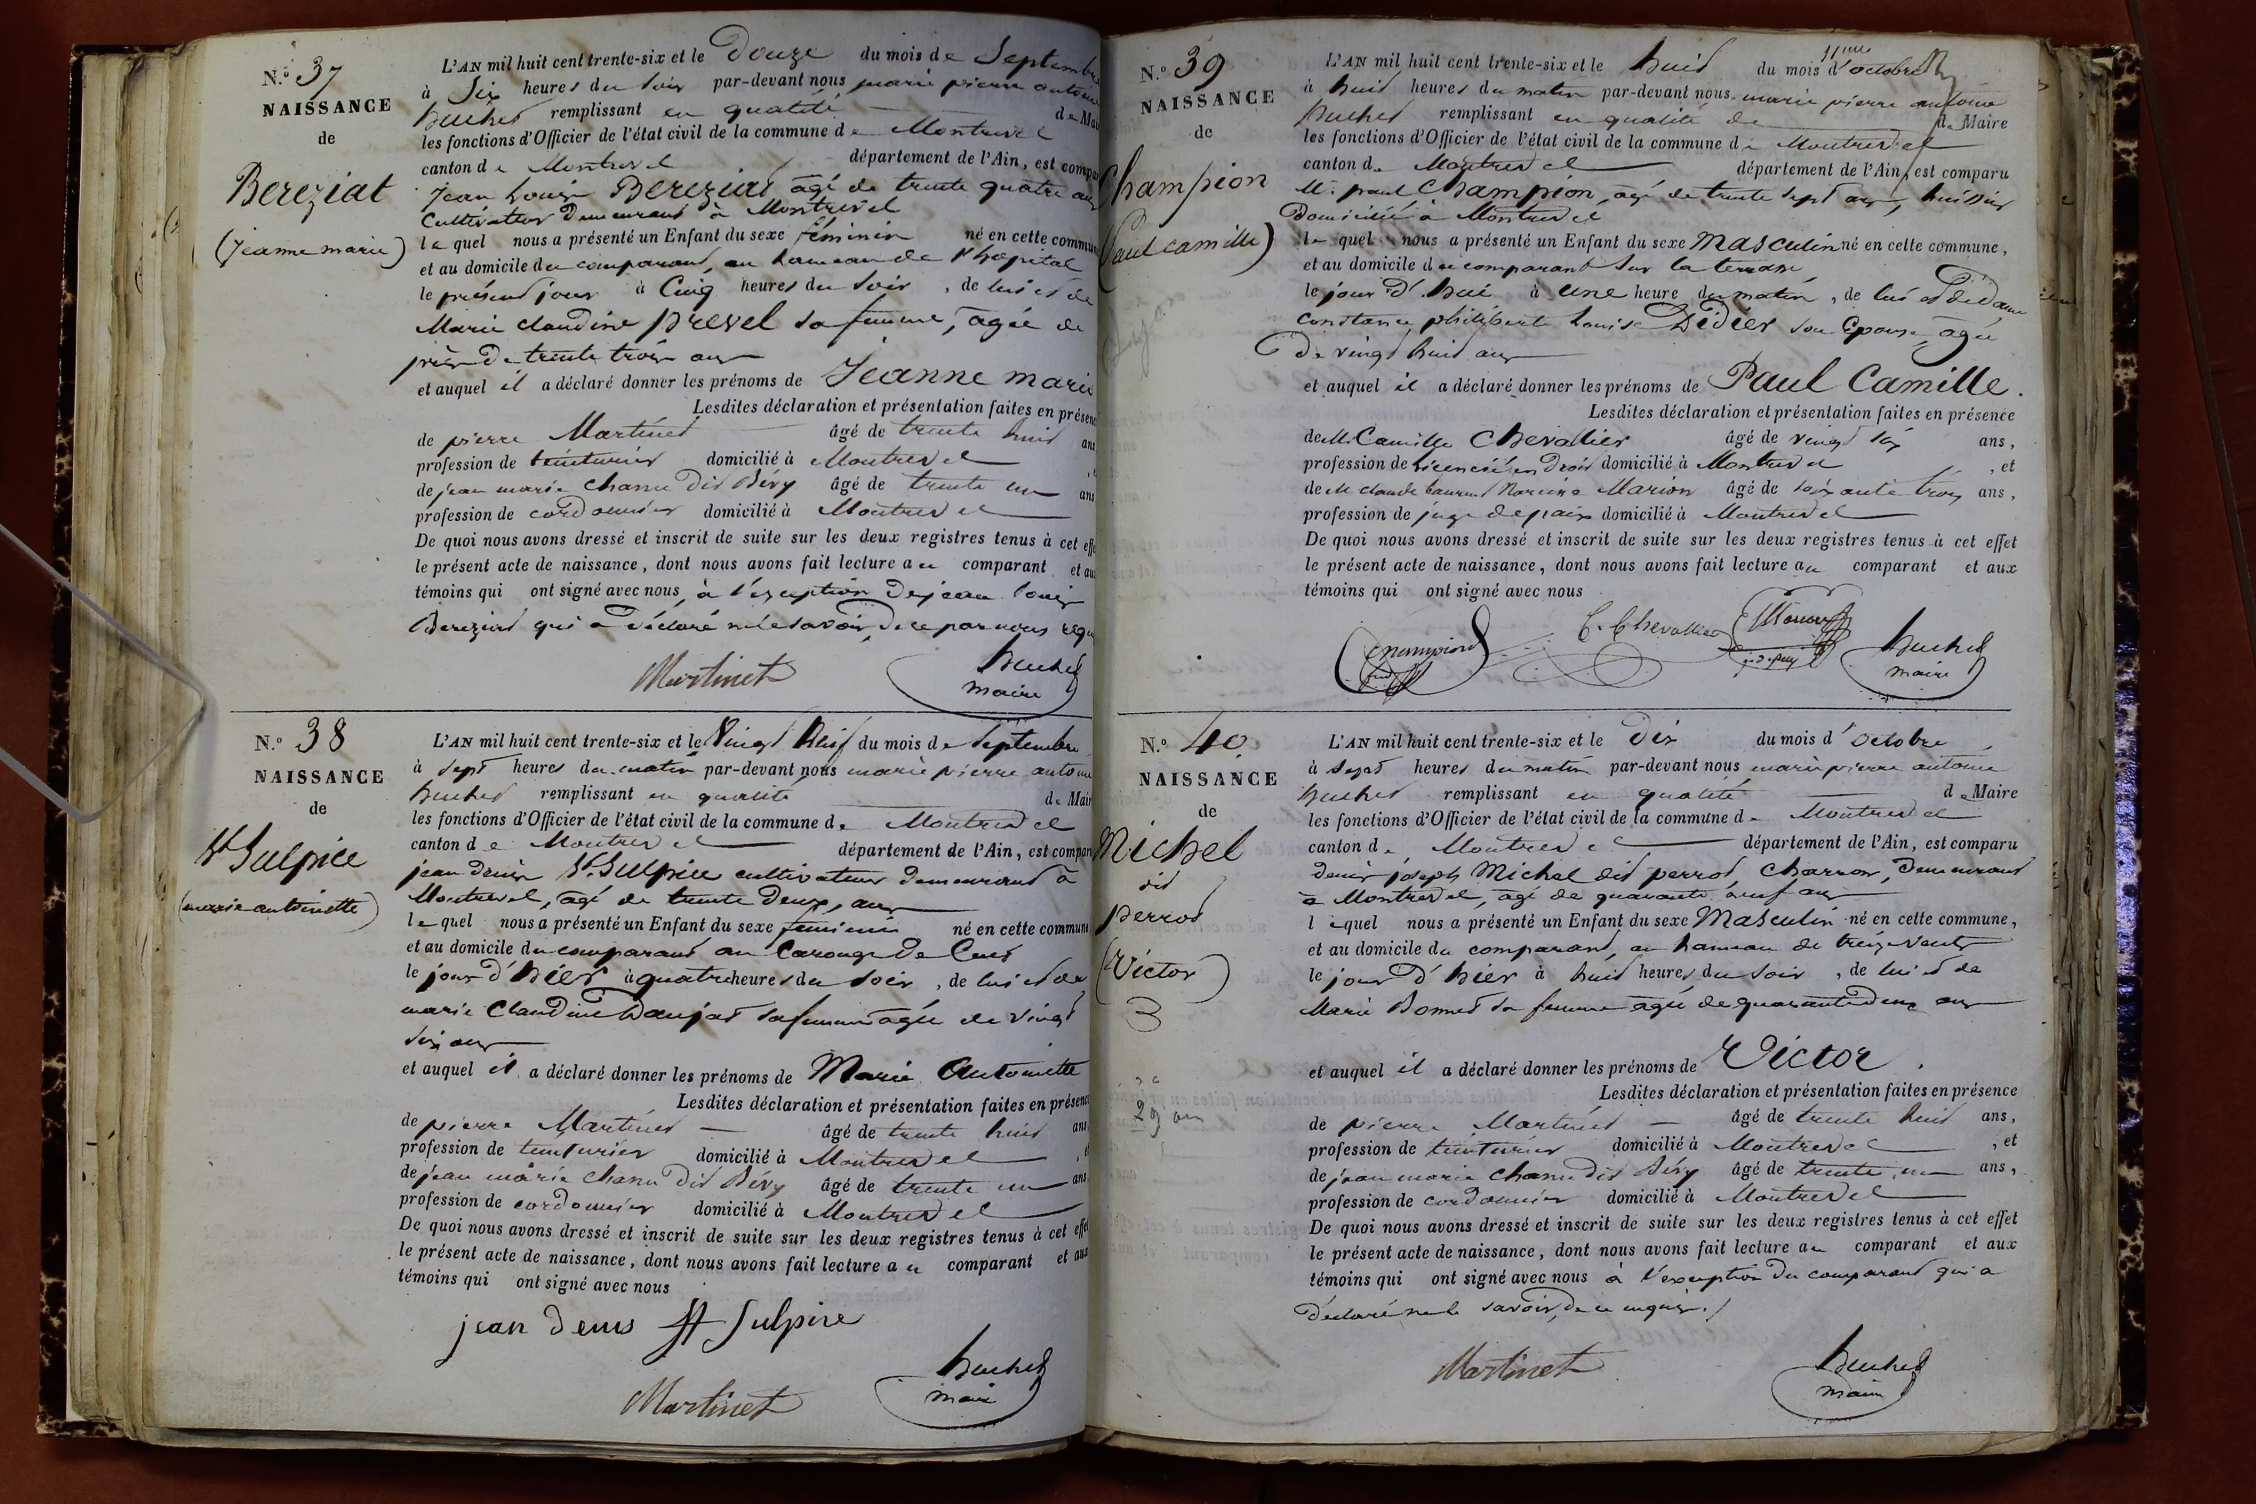 N.º 37
NAISSANCE
de
Bereziat
(Jeanne marie)
L'AN mil huit cent trente-six et le Douze du mois de Septembre
à Six heures du soir par-devant nous marie pierre antoine
huchet remplissant en qualité de Mai
les fonctions d'Officier de l'état civil de la commune de Montrevel
canton de Montrevel département de l'Ain, est compar
Jean Louis Bereziat âgé de trente quatre ans
Cultivateur demeurant à Montrevel
lequel nous a présenté un Enfant du sexe féminin né en cette commun
et au domicile du comparant, au hameau de l'hopital
le présent jour à Cinq heures du soir, de lui et de
Marie claudine prevel sa femme, agée de
près de trente trois ans
et auquel il a déclaré donner les prénoms de Jeanne marie
Lesdites déclaration et présentation faites en présenc
de pierre Martinet âgé de trente huit ans
profession de teinturier domicilié à Montrevel
de jean marie chanu dit Bévy âgé de trente un ans
profession de cordonnier domicilié à Montrevel
De quoi nous avons dressé et inscrit de suite sur les deux registres tenus à cet effe
le présent acte de naissance, dont nous avons fait lecture au comparant et aux
témoins qui ont signé avec nous, à l'exception de jean louis
Bereziat qui a déclaré ne le savoir, de ce par nous requ
Martinet
huchet
maire
N.º 38
NAISSANCE
de
St Sulpice
(marie antoinette)
L'AN mil huit cent trente-six et le Vingt Neuf du mois de Septembre
à sept heures du matin par-devant nous marie pierre antoine
huchet remplissant en qualité de Mair
les fonctions d'Officier de l'état civil de la commune de Montrevel
canton de Montrevel département de l'Ain, est comparu
jean denis St. Sulpice cultivateur demeurant à
Montrevel, agé de trente deux ans
lequel nous a présenté un Enfant du sexe feminin né en cette commune
et au domicile du comparant au Carouge de Cuet
le jour d'hier à quatre heures du soir, de lui et de
marie Claudine Daujat sa femme agée de vingt
six ans
et auquel il a déclaré donner les prénoms de Marie Antoinette
Lesdites déclaration et présentation faites en présence
de pierre Martinet âgé de trente huit ans
profession de teinturier domicilié à Montrevel
de jean marie chanu dit Bévy âgé de trente un ans
profession de cordonnier domicilié à Montrevel
De quoi nous avons dressé et inscrit de suite sur les deux registres tenus à cet effet
le présent acte de naissance, dont nous avons fait lecture au comparant et aux
témoins qui ont signé avec nous
jean denis St Sulpice
Martinet
huchet
maire
N.º 39
NAISSANCE
de
Champion
(Paul camille)
L'AN mil huit cent trente-six et le huit du mois d'octobre
à huit heures du matin par-devant nous marie pierre antoine
huchet remplissant en qualité de de Maire
les fonctions d'Officier de l'état civil de la commune de Montrevel
canton de Montrevel département de l'Ain, est comparu
M. paul Champion, agé de trente sept ans, huissier
Domicilié à Montrevel
lequel nous a présenté un Enfant du sexe Masculin né en cette commune,
et au domicile du comparant sur la terrasse
le jour d'hui à une heure du matin, de lui et de dame
constance philiberte Louise Didier son Epouse, agée
de vingt huit ans
et auquel il a déclaré donner les prénoms de Paul Camille.
Lesdites déclaration et présentation faites en présence
de M. Camille Chevallier âgé de vingt six ans,
profession de licencié en droit domicilié à Montrevel, et
de M claude laurent Marion âgé de soixante trois ans,
profession de juge de paix domicilié à Montrevel
De quoi nous avons dressé et inscrit de suite sur les deux registres tenus à cet effet
le présent acte de naissance, dont nous avons fait lecture au comparant et aux
témoins qui ont signé avec nous
Champion
C. Chevallier
Marion
huchet
maire
N.º 40
NAISSANCE
de
Michel
dit
perrot
(Victor)
L'AN mil huit cent trente-six et le Dix du mois d'octobre
à sept heures du matin par-devant nous marie pierre antoine
huchet remplissant en qualité de Maire
les fonctions d'Officier de l'état civil de la commune de Montrevel
canton de Montrevel département de l'Ain, est comparu
denis joseph Michel dit perrot, charron, demeurant
à Montrevel, agé de quarante neuf ans
lequel nous a présenté un Enfant du sexe Masculin né en cette commune,
et au domicile du comparant, au hameau de treize vents
le jour d'hier à huit heures du soir, de lui et de
Marie Bonnet sa femme agée de quarante deux ans
et auquel il a déclaré donner les prénoms de Victor.
Lesdites déclaration et présentation faites en présence
de pierre Martinet âgé de trente huit ans,
profession de teinturier domicilié à Montrevel, et
de jean marie chanu dit Bévy âgé de trente un ans,
profession de cordonnier domicilié à Montrevel
De quoi nous avons dressé et inscrit de suite sur les deux registres tenus à cet effet
le présent acte de naissance, dont nous avons fait lecture au comparant et aux
témoins qui ont signé avec nous à l'exception du comparant qui a
déclaré ne le savoir, de ce enquis./
Martinet
huchet
maire